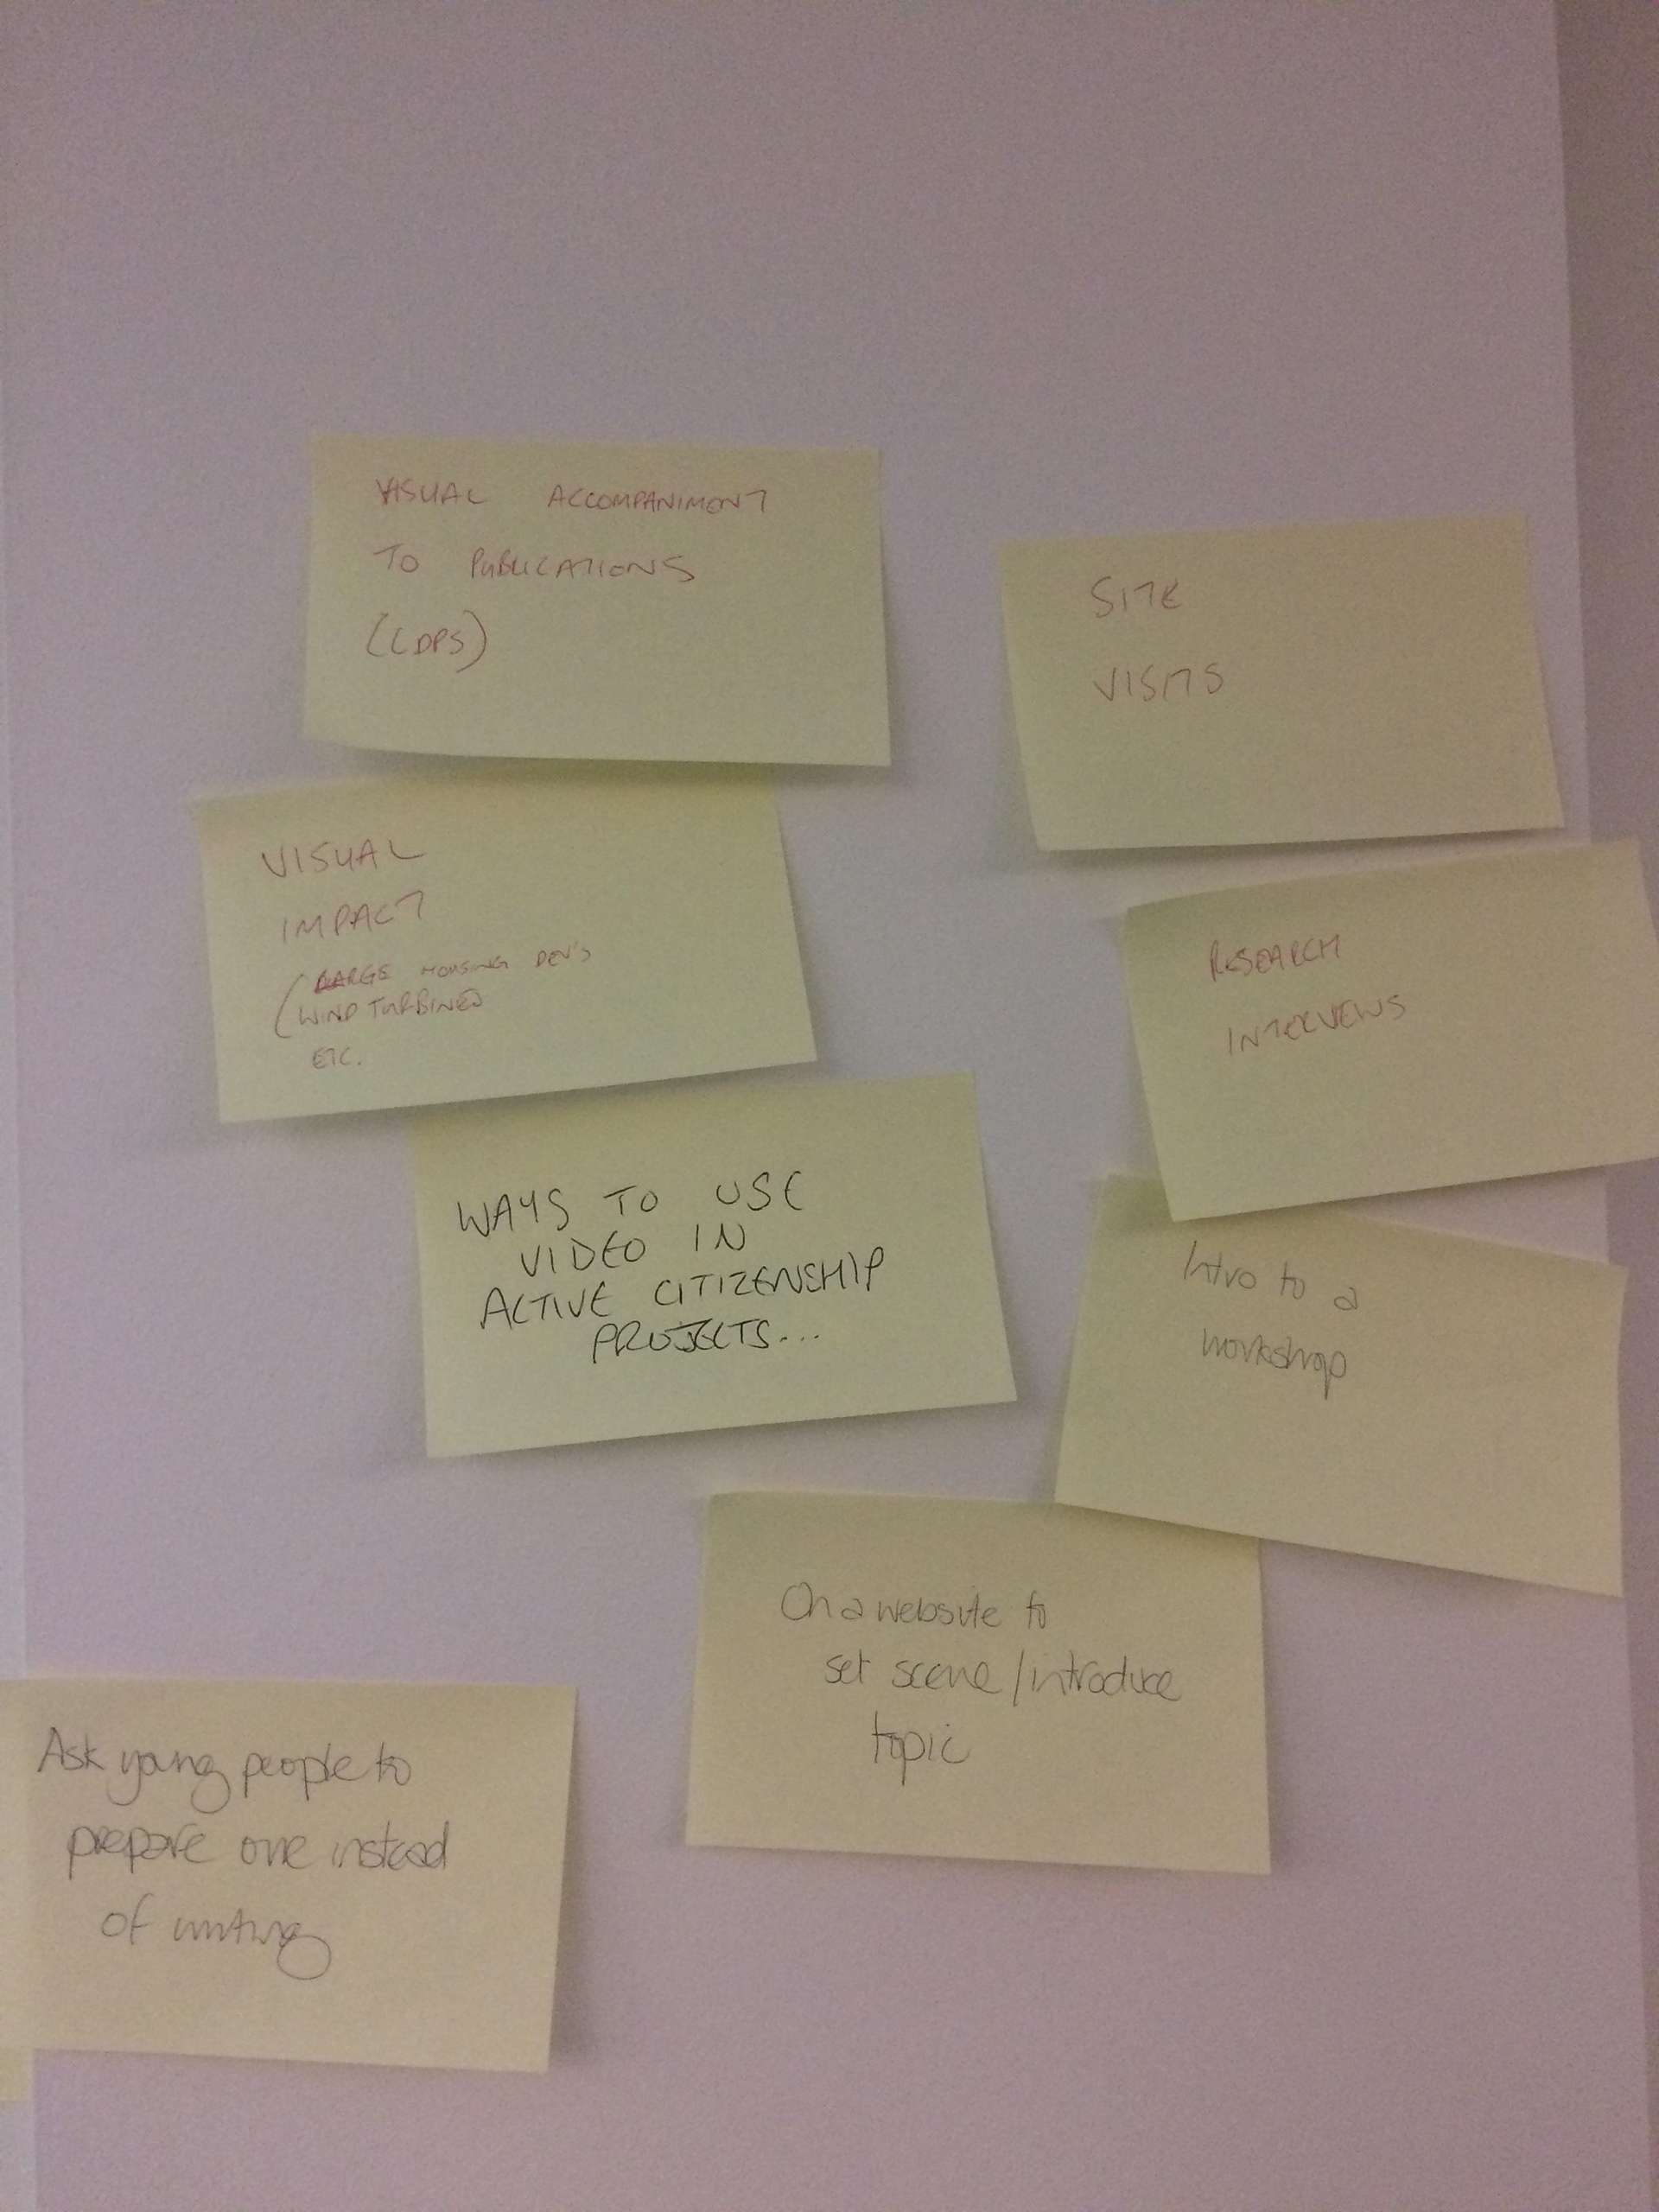 VISUAL ACCOMPANIMENT
TO PUBLICATIONS
(LDPS)
SITE
VISITS
VISUAL
IMPACT
(LARGE HOUSING DEV'S
WIND TURBINES
ETC.
RESEARCH
INTERVIEWS
WAYS TO USE
VIDEO IN
ACTIVE CITIZENSHIP
PROJECTS...
Intro to a
workshop
On a website to
set scene/introduce
topic
Ask young people to
prepare one instead
of writing